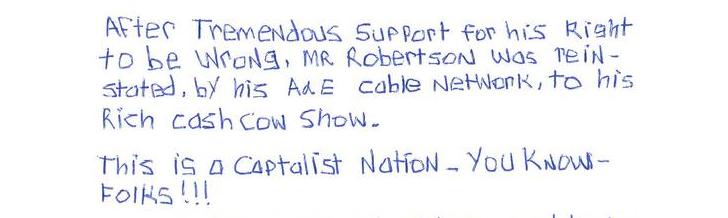 After Tremendous Support for his Right
to be Wrong, MR Robertson was rein-
stated, by his A&E cable Network, to his
Rich cash cow Show.
This is a Captalist Nation - You Know -
Folks!!!